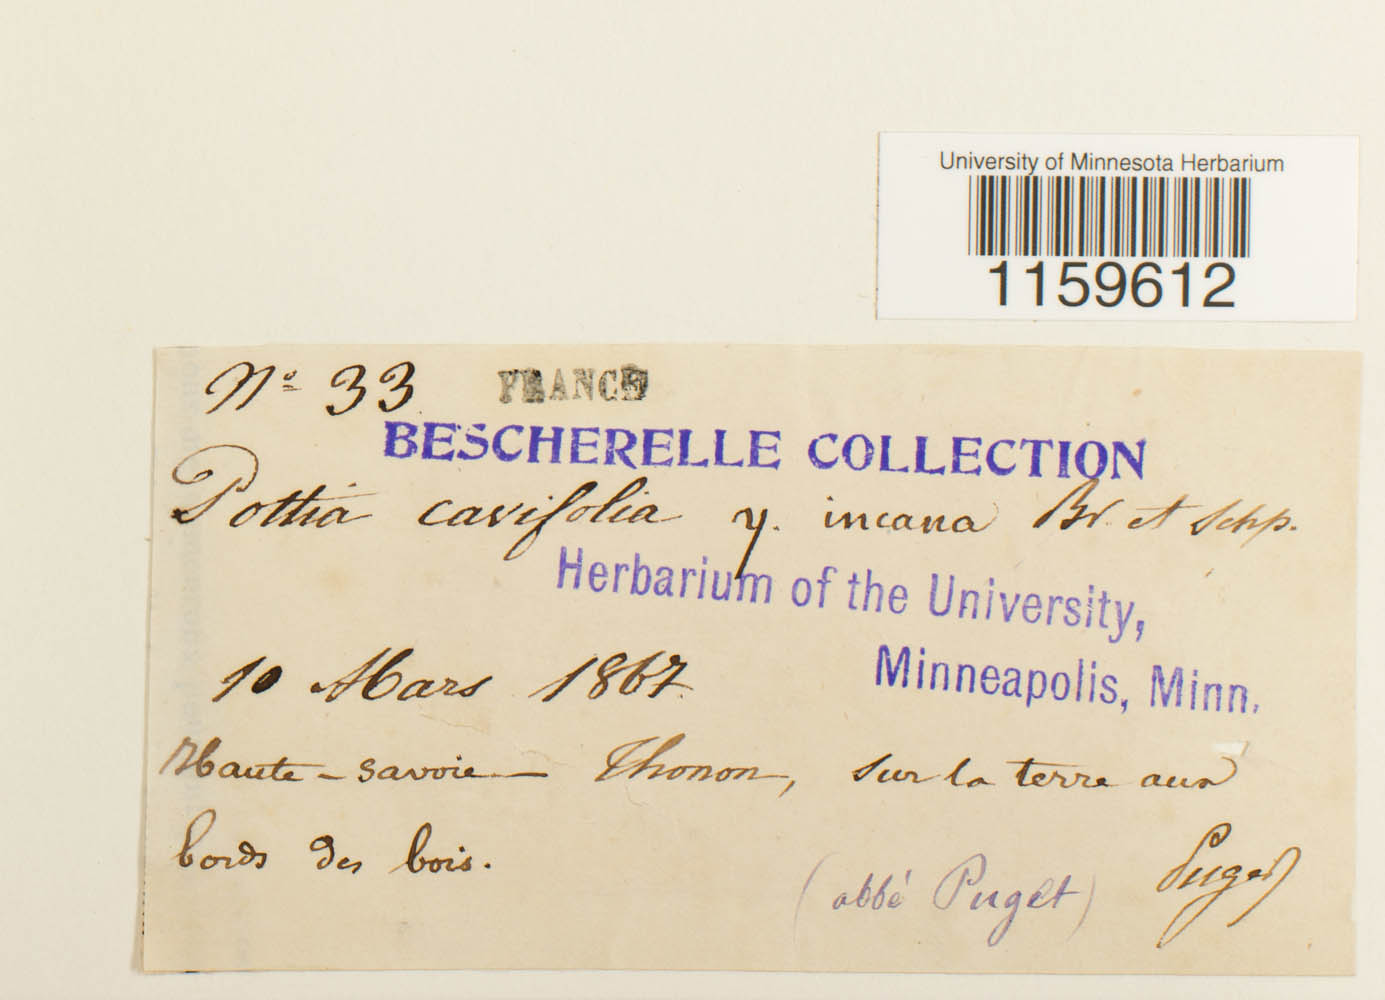 University of Minnesota Herbarium
1159612
No. 33 FRANCE
BESCHERELLE COLLECTION
Pottia cavifolia γ. incana Br. et Schp.
Herbarium of the University,
Minneapolis, Minn.
10 Mars 1867
Haute-Savoie — Thonon, sur la terre aux
bords des bois.
(abbé Puget) Puget